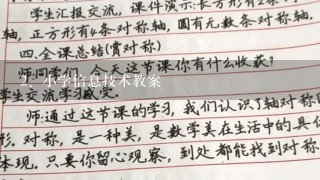 学生汇报交流,课件演示:长方形有2条
轴,正方形有4条对称轴,圆有无数条对称轴.
四.全课总结(赏对称)
师:同学们,今天这节课你有什么收获?
2. 小学信息技术教案
学生交流学习
师:通过这节课的学习,我们认识了轴对称
形.对称,是一种美,是数学美在生活中的具
体现.只要你留心观察,到处都能找到对称